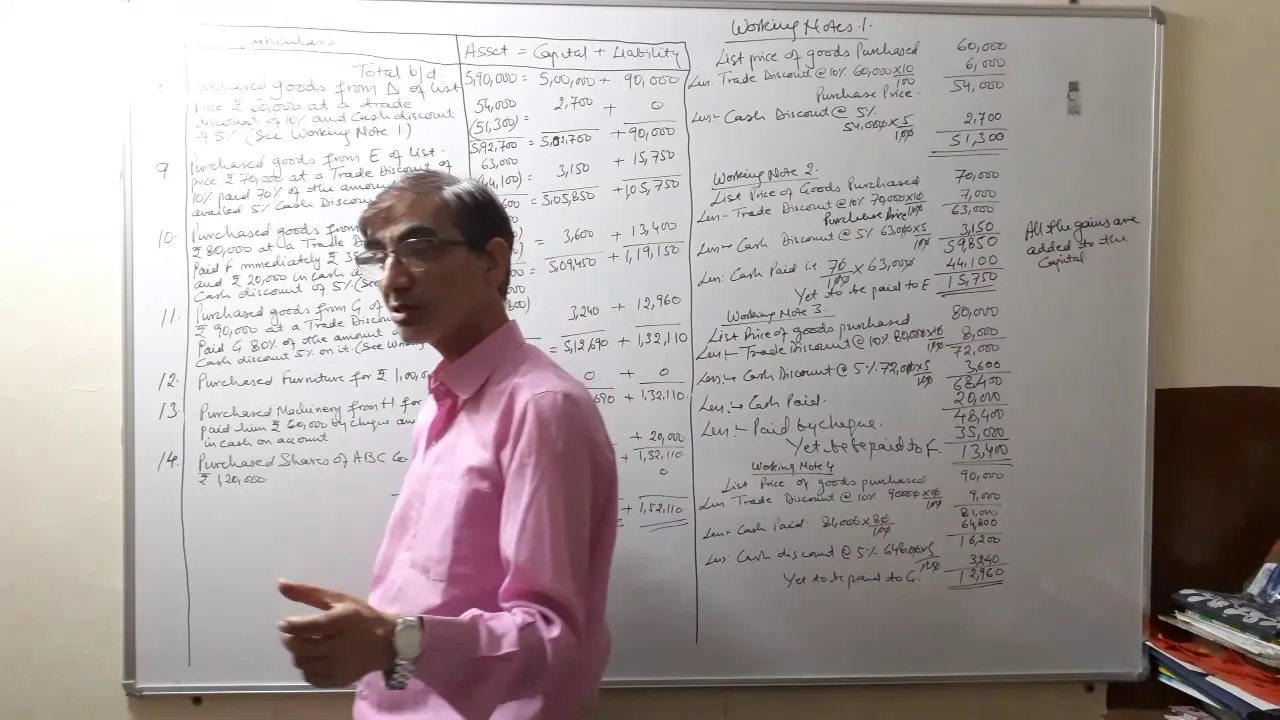 Particulars
Asset = Capital + Liability
Total b/d.
5,90,000 = 5,00,000 + 90,000
Purchased goods from D of list
price ₹ 60,000 at a trade
discount of 10% and Cash discount
of 5% (See Working Note 1.)
54,000 2,700 + 0
(51,300) =
5,92,700 = 5,02,700 + 90,000
9 Purchased goods from E of list.
price ₹ 70,000 at a Trade Discount of
10% paid 70% of the amount
availed 5% Cash Discou
63,000 3,150 + 15,750
4,100) =
600 = 5,05,850 + 1,05,750
10. Purchased goods from
₹ 80,000 at a Trade D
Paid F immediately ₹ 3
and ₹ 20,000 in cash a
Cash discount of 5% (See
= 3,600 + 13,400
= 5,09,450 + 1,19,150
11. Purchased goods from G of
₹ 90,000 at a Trade Disco
Paid G 80% of the amount a
Cash discount 5% on it. (See Wor
800) 3,240 + 12,960
= 5,12,690 + 1,32,110
12. Purchased Furniture for ₹ 1,00,00
0 + 0
690 + 1,32,110.
13. Purchased Machinery from H for
paid him ₹ 60,000 by cheque an
in cash on account
+ 20,000
14. Purchased Shares of ABC Co
₹ 1,20,000
+ 1,52,110
0
+ 1,52,110
Working Notes 1.
List price of goods Purchased 60,000
Less: Trade Discount @ 10% 60,000 x 10/100 6,000
Purchase Price. 54,000
Less:- Cash Discount @ 5%
54,000 x 5/100 2,700
51,300
Working Note 2.
List Price of Goods Purchased 70,000
Less:- Trade Discount @ 10% 70,000 x 10/100 7,000
Purchase Price 63,000
Less:- Cash Discount @ 5% 63,000 x 5/100 3,150
59,850
Less: Cash Paid i.e. 70/100 x 63,000 44,100
Yet to be paid to E 15,750
Working Note 3.
List Price of goods purchased 80,000
Less:- Trade Discount @ 10% 80,000 x 10/100 8,000
72,000
Less:- Cash Discount @ 5% 72,000 x 5/100 3,600
68,400
Less:- Cash Paid. 20,000
48,400
Less:- Paid by cheque. 35,000
Yet be be paid to F. 13,400
Working Note 4
List Price of goods purchased 90,000
Less Trade Discount @ 10% 90000 x 10/100 9,000
81,000
Less:- Cash Paid 81,000 x 80/100 64,800
16,200
Less: Cash discount @ 5% 64800 x 5/100 3,240
Yet to be paid to G. 12,960
All the gains are
added to the
Capital.